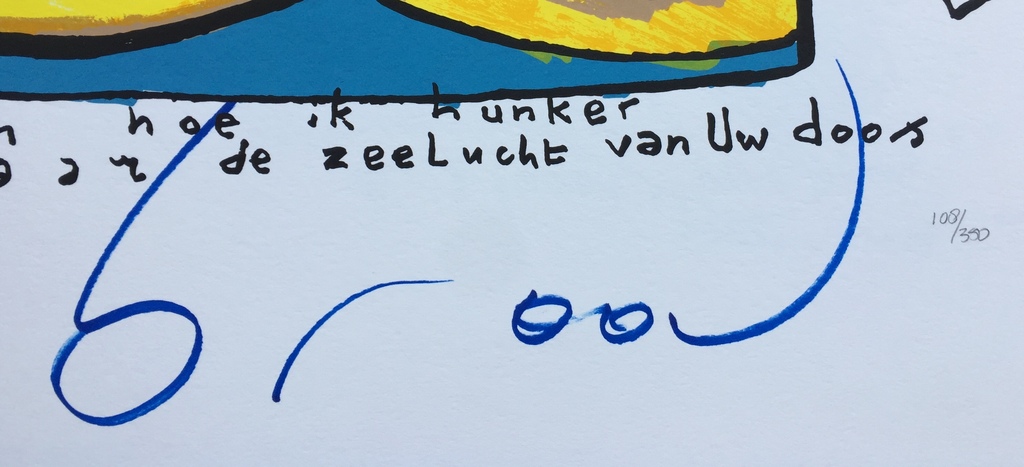 hoe ik hunker
naar de zeelucht van Uw doos
108/350
brood